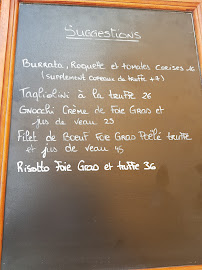 Suggestions
Burrata, Roquette et tomates Cerises 16
(supplément copeaux de truffe +7)
Tagliolini à la truffe 26
Gnocchi Crème de Foie Gras et
jus de veau 23
Filet de Bœuf Foie Gras Poêlé truffe
et jus de veau 45
Risotto Foie Gras et truffe 36